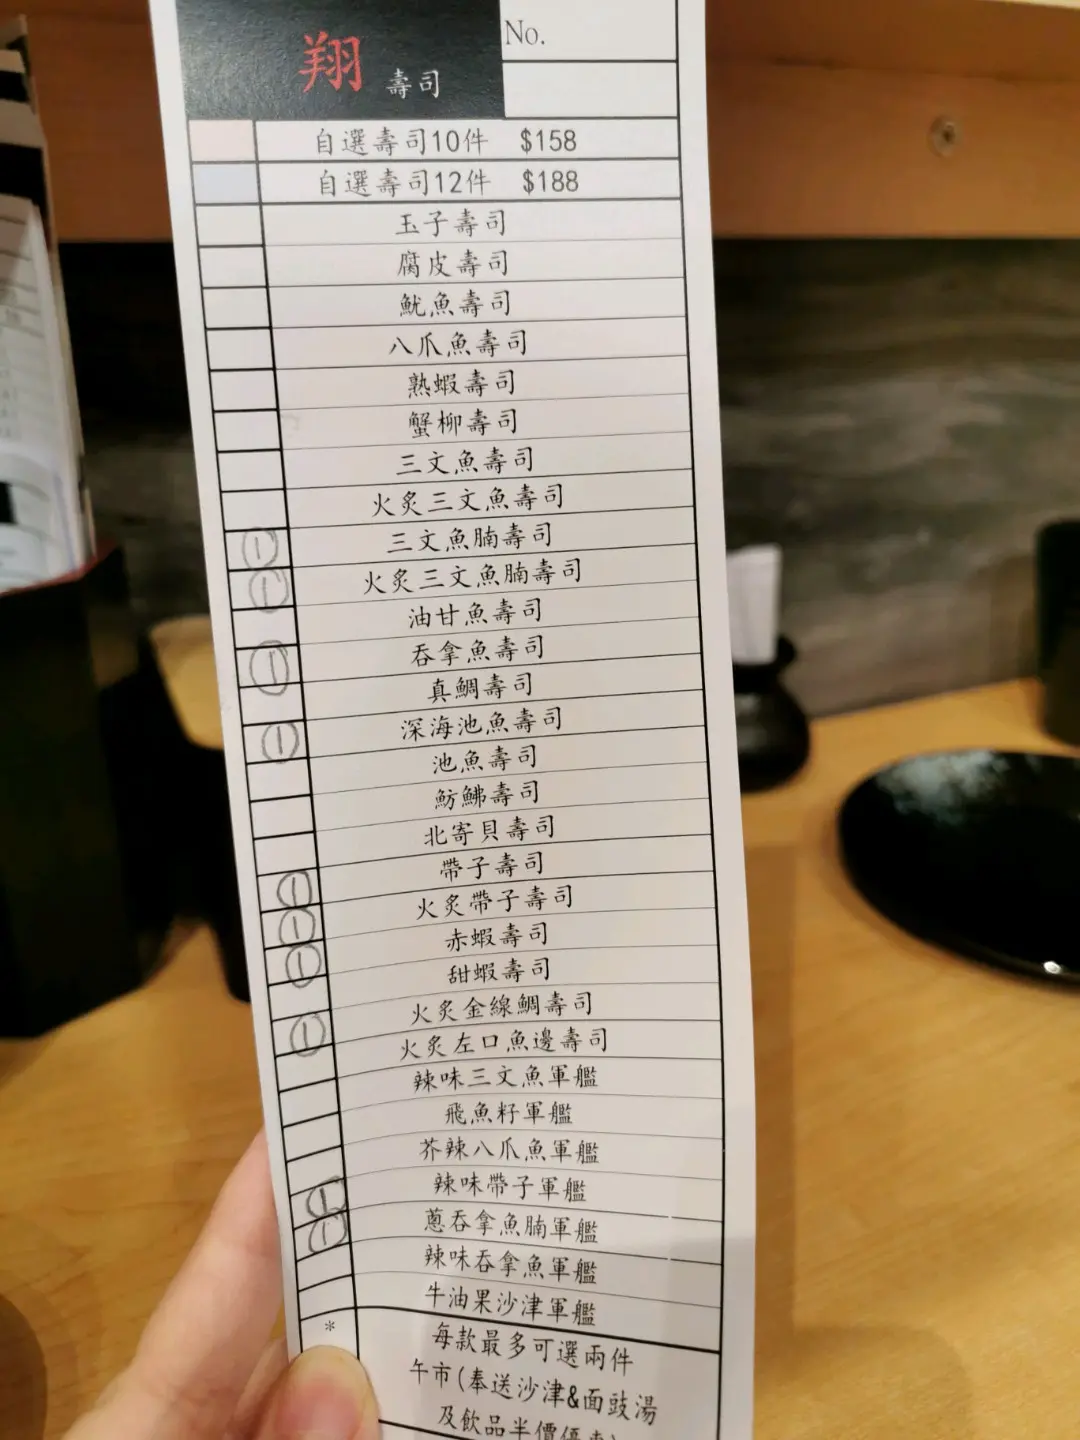 翔 壽司
No.
自選壽司10件 $158
自選壽司12件 $188
玉子壽司
腐皮壽司
魷魚壽司
八爪魚壽司
熟蝦壽司
蟹柳壽司
三文魚壽司
火炙三文魚壽司
① 三文魚腩壽司
① 火炙三文魚腩壽司
油甘魚壽司
① 吞拿魚壽司
真鯛壽司
① 深海池魚壽司
池魚壽司
魴鮄壽司
北寄貝壽司
① 帶子壽司
① 火炙帶子壽司
① 赤蝦壽司
甜蝦壽司
① 火炙金線鯛壽司
火炙左口魚邊壽司
辣味三文魚軍艦
飛魚籽軍艦
芥辣八爪魚軍艦
① 辣味帶子軍艦
① 蔥吞拿魚腩軍艦
辣味吞拿魚軍艦
牛油果沙津軍艦
* 每款最多可選兩件
午市(奉送沙津&面豉湯
及飲品半價優惠)